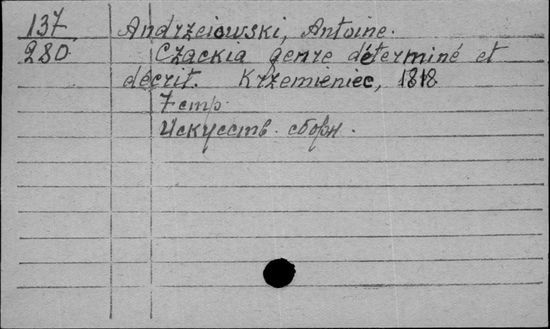 137 Andrzeiowski, Antoine.
280 Czackia genre déterminé et
décrit. Krzemieniec, 1818
7 стр.
Искусств. сборн.